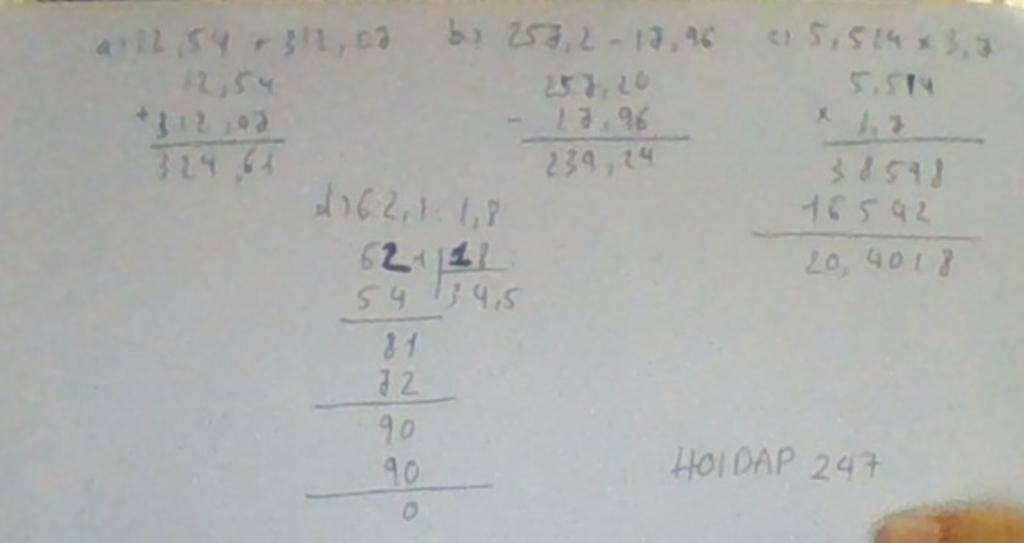 a) 12,54 + 312,07
12,54
+ 312,07
324,61
b) 257,2 - 17,96
257,20
- 17,96
239,24
c) 5,514 x 3,7
5,514
x 3,7
38598
16542
20,4018
d) 62,1 : 1,8
621 18
54 34,5
81
72
90
90
0
HOIDAP 247